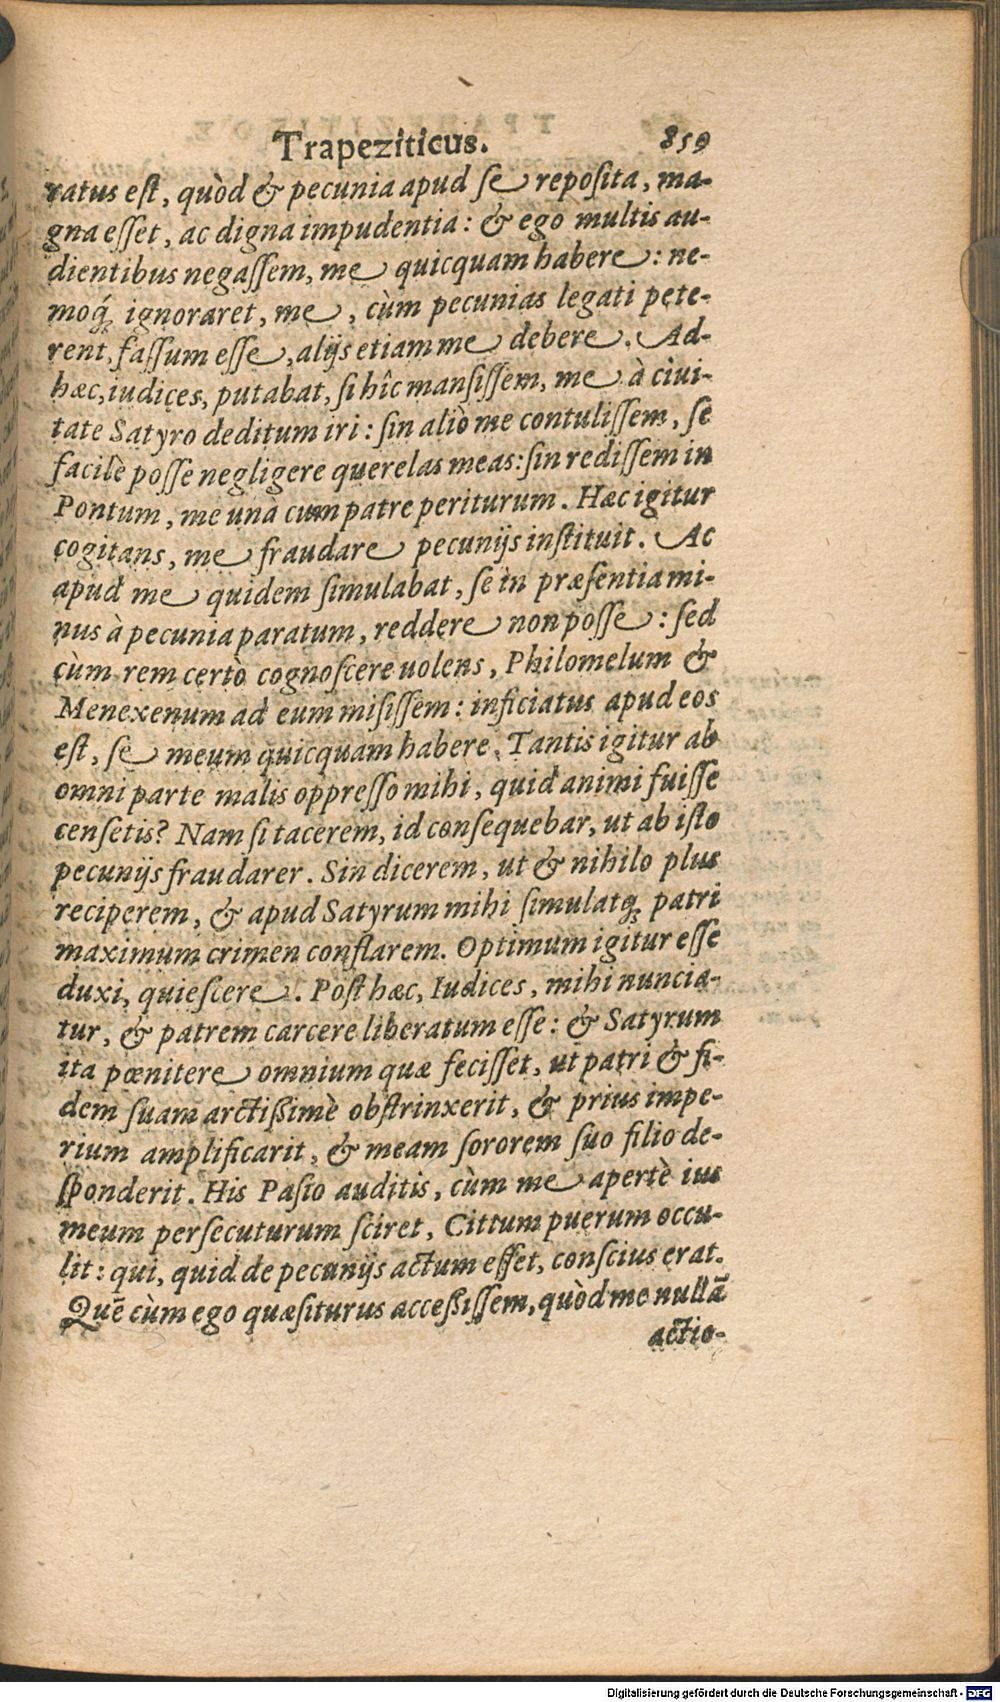 Trapeziticus. 859
ratus eſt, quòd & pecunia apud ſe repoſita, ma-
gna eſſet, ac digna impudentia: & ego multis au-
dientibus negaſſem, me quicquam habere: ne-
moq́ꝫ ignoraret, me, cùm pecunias legati pete-
rent, faſſum eſſe, alijs etiam me debere. Ad-
hæc, iudices, putabat, ſi hîc manſiſſem, me à ciui-
tate Satyro deditum iri: ſin aliò me contuliſſem, ſe
facilè poſſe negligere querelas meas: ſin rediſſem in
Pontum, me unà cum patre periturum. Hæc igitur
cogitans, me fraudare pecunijs inſtituit. Ac
apud me quidem ſimulabat, ſe in præſentia mi-
nus à pecunia paratum, reddere non poſſe: ſed
cùm rem certò cognoſcere uolens, Philomelum &
Menexenum ad eum miſiſſem: inficiatus apud eos
eſt, ſe meum quicquam habere. Tantis igitur ab
omni parte malis oppreſſo mihi, quid animi fuiſſe
cenſetis? Nam ſi tacerem, id conſequebar, ut ab iſto
pecunijs fraudarer. Sin dicerem, ut & nihilo plus
reciperem, & apud Satyrum mihi ſimulatqꝫ patri
maximum crimen conflarem. Optimum igitur eſſe
duxi, quieſcere. Poſt hæc, Iudices, mihi nuncia-
tur, & patrem carcere liberatum eſſe: & Satyrum
ita pœnitere omnium quæ feciſſet, ut patri & fi-
dem ſuam arctißimè obſtrinxerit, & prius impe-
rium amplificarit, & meam ſororem ſuo filio de-
ſponderit. His Paſio auditis, cùm me apertè ius
meum perſecuturum ſciret, Cittum puerum occu-
lit: qui, quid de pecunijs actum eſſet, conſcius erat.
Quē cùm ego quæſiturus acceßiſſem, quòd me nullā
actio-
Digitalisierung gefördert durch die Deutsche Forschungsgemeinschaft - DFG